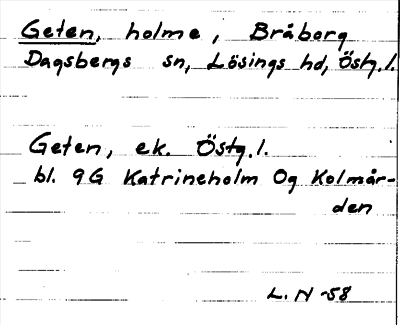 Geten, holme, Bråborg
Dagsbergs sn, Lösings hd, Östg.l.
Geten, ek. Östg.l.
bl. 9G Katrineholm Og Kolmår-
den
L. N -58